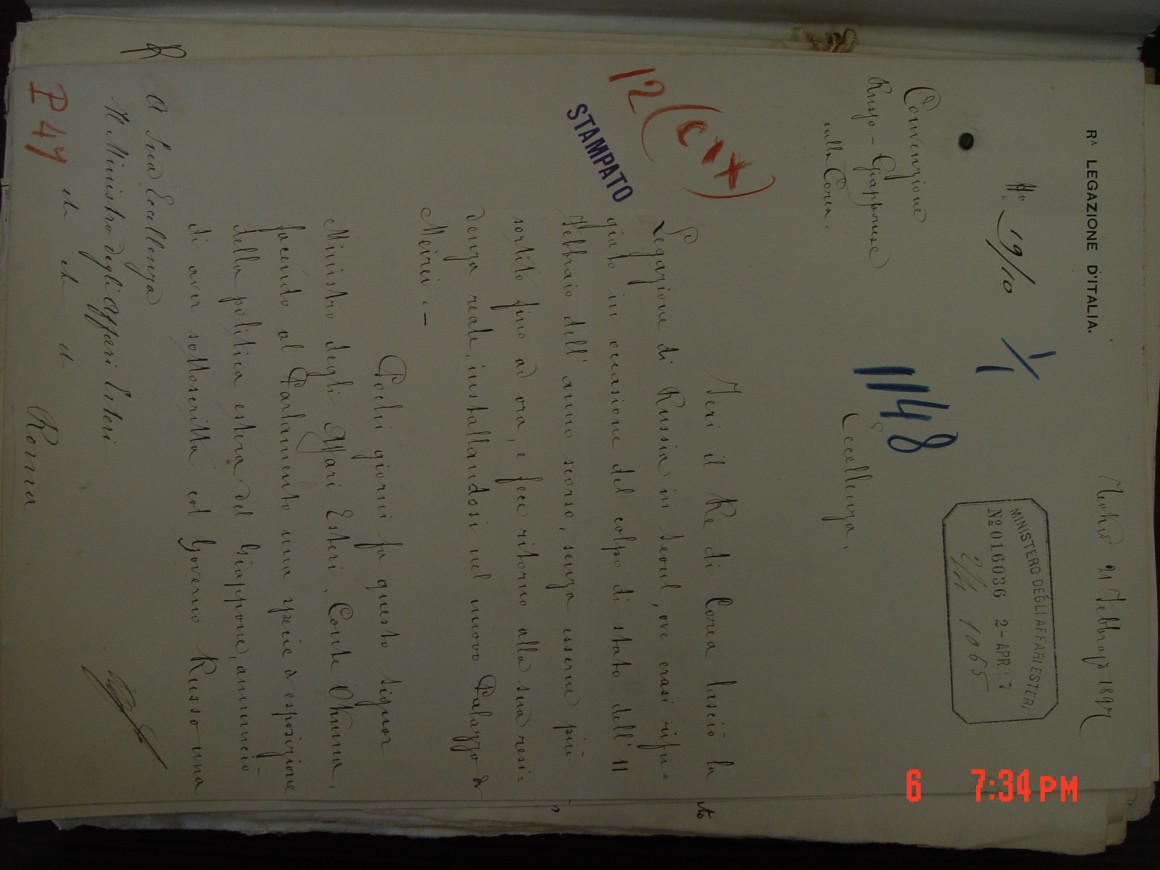 Rᴬ LEGAZIONE D'ITALIA.
Tokio 21 Febbraio 1897
Nº 19/10
1/1
MINISTERO DEGLI AFFARI ESTERI
Nº 016036 2-APR. 97
1065
Convenzione
Russo-Giapponese
sulla Corea.
1148
Eccellenza,
12 (
STAMPATO
Ieri il Re di Corea lasciò la
Legazione di Russia in Seoul, ove erasi rifu=
giato in occasione del colpo di stato dell' 11
Febbraio dell' anno scorso, senza esserne più
sortito fino ad ora, e fece ritorno alla sua resi=
denza reale, installandosi nel nuovo Palazzo di
Meirei.-
Pochi giorni fa questo Signor
Ministro degli Affari Esteri, Conte Okuma,
facendo al Parlamento una specie di esposizione
della politica estera del Giappone, annunciò
di aver sottoscritta col Governo Russo una
A Sua Eccellenza
Il Ministro degli Affari Esteri
etc etc etc
Roma
P 47
6 7:34 PM